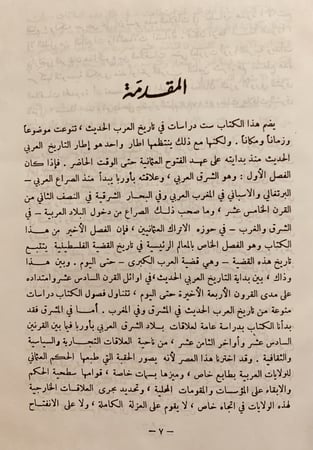 المقدمة
يضم هذا الكتاب ست دراسات في تاريخ العرب الحديث ، تنوعت موضوعاً
وزماناً ومكاناً . ولكنها مع ذلك ينتظمها اطار واحد هو إطار التاريخ العربي
الحديث منذ بدايته على عهد الفتوح العثمانية حتى الوقت الحاضر . فإذا كان
الفصل الأول : وهو الشرق العربي ، وعلاقته بأوربا يبدأ منذ الصراع العربي –
البرتغالي والاسباني في المغرب العربي وفي البحار الشرقية في النصف الثاني من
القرن الخامس عشر ، وما صحب ذلك الصراع من دخول البلاد العربية – في
الشرق والغرب – في حوزة الاتراك العثمانيين ، فإن الفصل الأخير من هذا
الكتاب وهو الفصل الخاص بالمعالم الرئيسية في تاريخ القضية الفلسطينية يتتبع
تاريخ هذه القضية – وهي قضية العرب الكبرى – حتى اليوم . وبين هذا
وذاك ، بين بداية التاريخ العربي الحديث في اوائل القرن السادس عشر وامتداده
على مدى القرون الأربعة الأخيرة حتى اليوم ، تتناول فصول الكتاب دراسات
منوعة من تاريخ العرب الحديث في المشرق وفي المغرب . أما في المشرق فقد
بدأنا الكتاب بدراسة عامة لعلاقات بلاد الشرق العربي بأوربا فيما بين القرنين
السادس عشر وأواخر الثامن عشر ، من ناحية العلاقات التجارية والسياسية
والثقافية . وقد اخترنا هذا العصر لأنه يصور الحقبة التي طبعها الحكم العثماني
للولايات العربية بطابع خاص ، وميزها بسمات خاصة ، قوامها سطحية الحكم
والابقاء على المؤسسات والمقومات المحلية ، وتحديد مجرى العلاقات الخارجية
لهذه الولايات في اتجاه خاص ، لا يقوم على العزلة الكاملة ، ولا على الانفتاح
– ٧ –